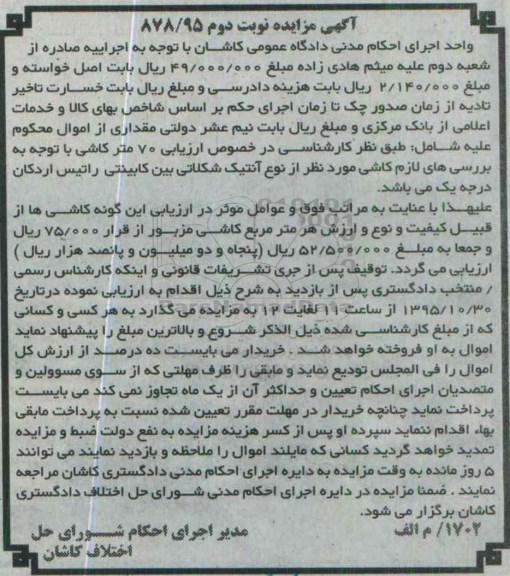 آگهی مزایده نوبت دوم ۸۷۸/۹۵
واحد اجرای احکام مدنی دادگاه عمومی کاشان با توجه به اجراییه صادره از
شعبه دوم علیه میثم هادی زاده مبلغ ۴۹/۰۰۰/۰۰۰ ریال بابت اصل خواسته و
مبلغ ۲/۱۴۰/۰۰۰ ریال بابت هزینه دادرسی و مبلغ ریال بابت خسارت تاخیر
تادیه از زمان صدور چک تا زمان اجرای حکم بر اساس شاخص بهای کالا و خدمات
اعلامی از بانک مرکزی و مبلغ ریال بابت نیم عشر دولتی مقداری از اموال محکوم
علیه شامل: طبق نظر کارشناسی در خصوص ارزیابی ۷۰ متر کاشی با توجه به
بررسی های لازم کاشی مورد نظر از نوع آنتیک شکلاتی بین کابینتی راتیس اردکان
درجه یک می باشد.
علیهذا با عنایت به مراتب فوق و عوامل موثر در ارزیابی این گونه کاشی ها از
قبیل کیفیت و نوع و ارزش هر متر مربع کاشی مزبور از قرار ۷۵/۰۰۰ ریال
و جمعا به مبلغ ۵۲/۵۰۰/۰۰۰ ریال (پنجاه و دو میلیون و پانصد هزار ریال )
ارزیابی می گردد. توقیف پس از جری تشریفات قانونی و اینکه کارشناس رسمی
/ منتخب دادگستری پس از بازدید به شرح ذیل اقدام به ارزیابی نموده درتاریخ
۱۳۹۵/۱۰/۳۰ از ساعت ۱۱ لغایت ۱۲ به مزایده می گذارد به هر کسی و کسانی
که از مبلغ کارشناسی شده ذیل الذکر شروع و بالاترین مبلغ را پیشنهاد نماید
اموال به او فروخته خواهد شد . خریدار می بایست ده درصد از ارزش کل
اموال را فی المجلس تودیع نماید و مابقی را ظرف مهلتی که از سوی مسوولین و
متصدیان اجرای احکام تعیین و حداکثر آن از یک ماه تجاوز نمی کند می بایست
پرداخت نماید چنانچه خریدار در مهلت مقرر تعیین شده نسبت به پرداخت مابقی
بهاء اقدام ننماید سپرده او پس از کسر هزینه مزایده به نفع دولت ضبط و مزایده
تمدید خواهد گردید کسانی که مایلند اموال را ملاحظه و بازدید نمایند می توانند
۵ روز مانده به وقت مزایده به دایره اجرای احکام مدنی دادگستری کاشان مراجعه
نمایند . ضمنا مزایده در دایره اجرای احکام مدنی شورای حل اختلاف دادگستری
کاشان برگزار می شود.
۱۷۰۲/ م الف
مدیر اجرای احکام شورای حل
اختلاف کاشان